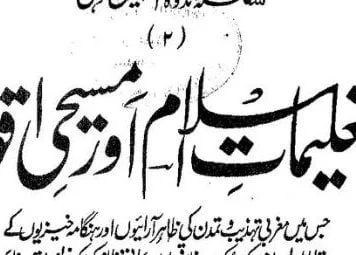 سلسلہ ندوۃ المصنفین دہلی
(۲)
تعلیمات اسلام اور مسیحی اقو
جس میں مغربی تہذیب و تمدن کی ظاہر آرائیوں اور ہنگامہ خیزیوں کے